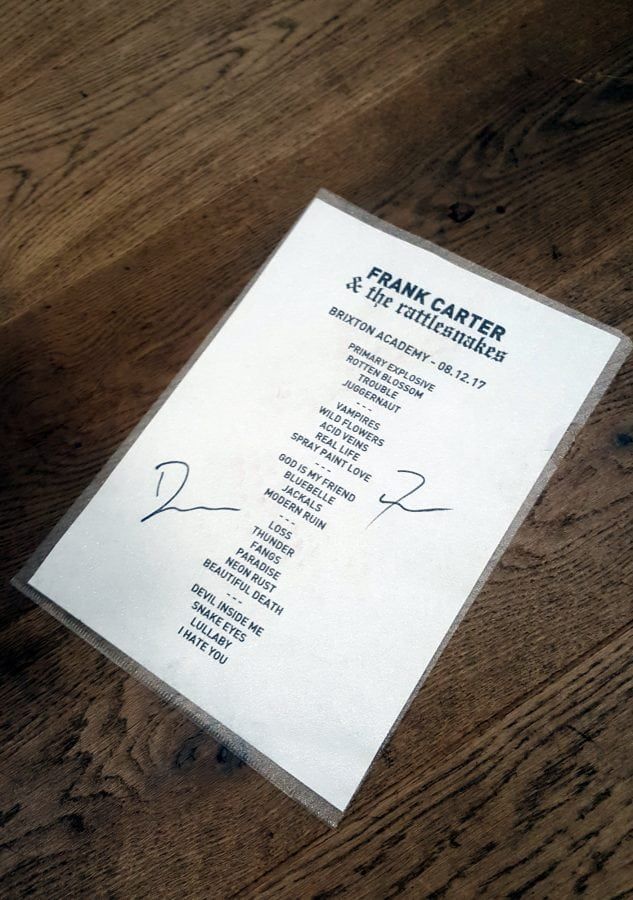 FRANK CARTER
& the rattlesnakes
BRIXTON ACADEMY - 08.12.17
PRIMARY EXPLOSIVE
ROTTEN BLOSSOM
TROUBLE
JUGGERNAUT
---
VAMPIRES
WILD FLOWERS
ACID VEINS
REAL LIFE
SPRAY PAINT LOVE
---
GOD IS MY FRIEND
BLUEBELLE
JACKALS
MODERN RUIN
---
LOSS
THUNDER
FANGS
PARADISE
NEON RUST
BEAUTIFUL DEATH
---
DEVIL INSIDE ME
SNAKE EYES
LULLABY
I HATE YOU